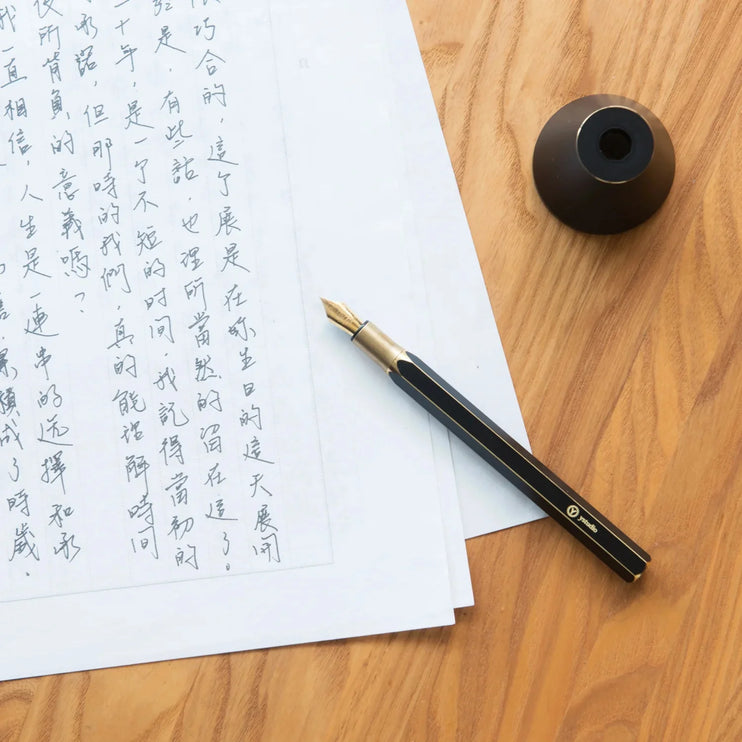 巧合的，這个展是在你生日的這天展開
是，有些話，也理所當然的留在這了。
十年，是一个不短的时间，我記得當初的
承諾，但那時的我們，真的能理解時間
所背負的意義嗎？
我一直相信，人生是一連串的选擇和承
累積成了時歲．
ystudio